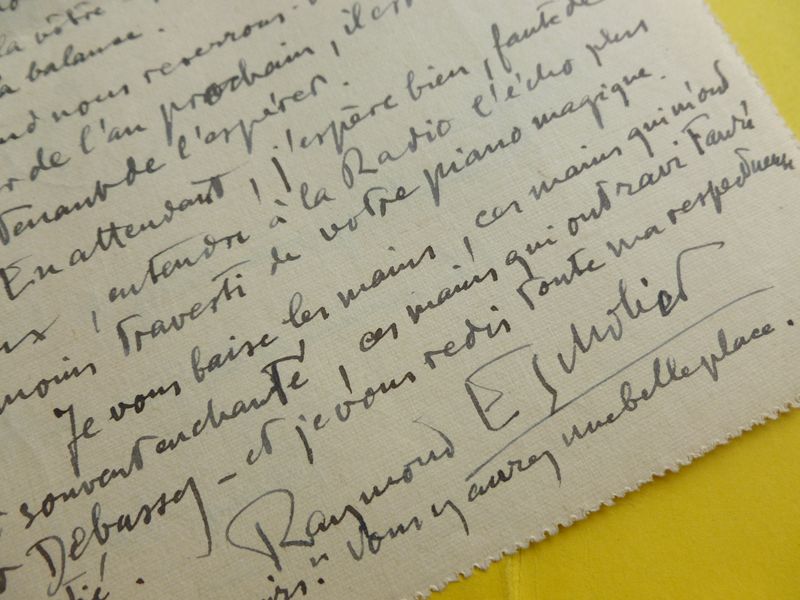 la vôtre
la balance.
nous reverrons
de l'an prochain, il est
tenant de l'espérer.
En attendant, j'espère bien, faute de
, entendre à la Radio l'écho plus
moins travesti de votre piano magique.
Je vous baise les mains, ces mains qui m'ont
souvent enchanté, ces mains qui ont ravi Fauré
Debussy – et je vous redis toute ma respectueuse
Raymond Escholier
" Vous y aurez une belle place.